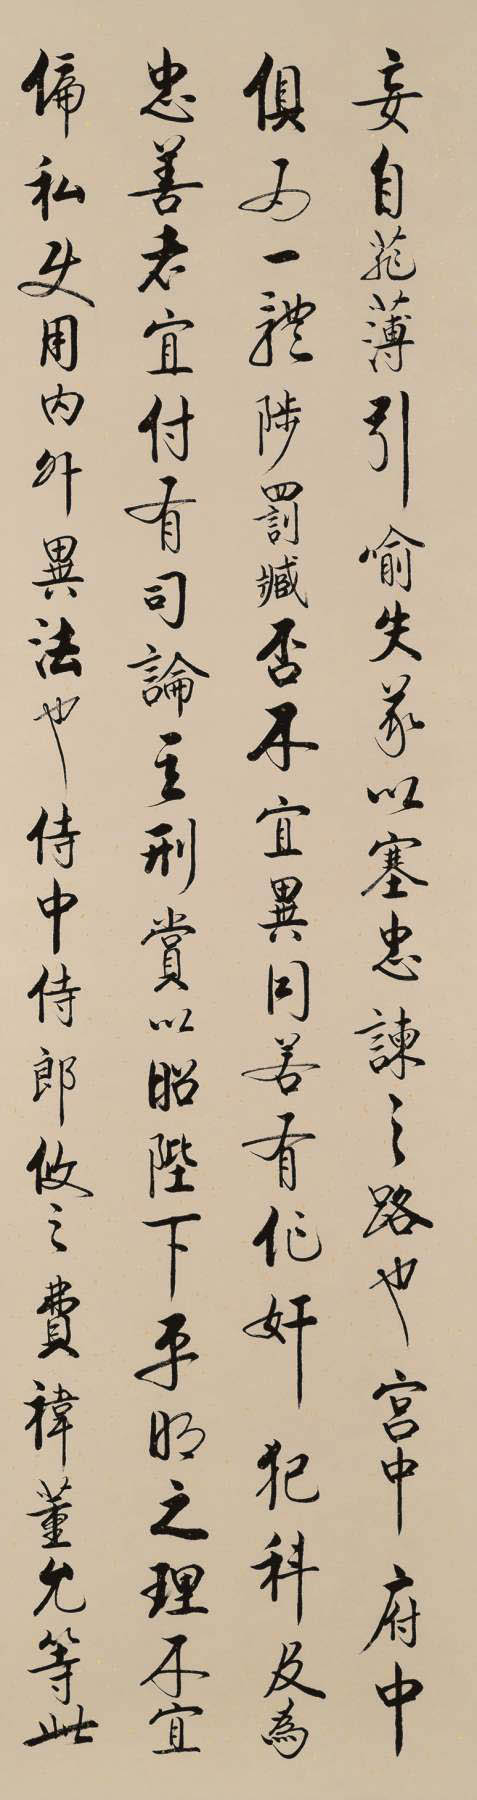 妄自菲薄引喻失義以塞忠諫之路也宮中府中
俱为一體陟罰臧否不宜異同若有作奸犯科及為
忠善者宜付有司論其刑賞以昭陛下平明之理不宜
偏私使用內外異法也侍中侍郎攸之費禕董允等此